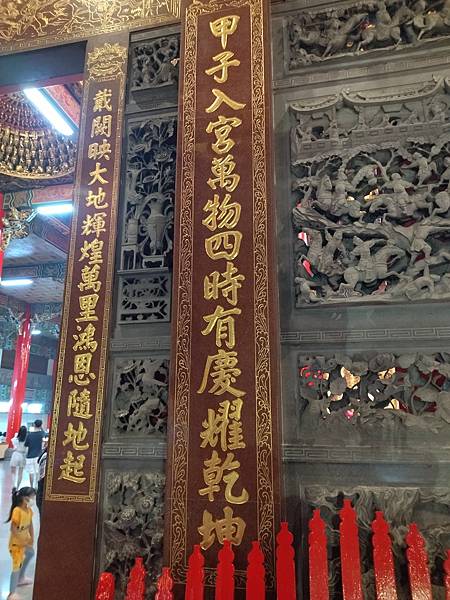 甲子入宮萬物四時有慶耀乾坤
戴闕映大地輝煌萬里鴻恩隨地起